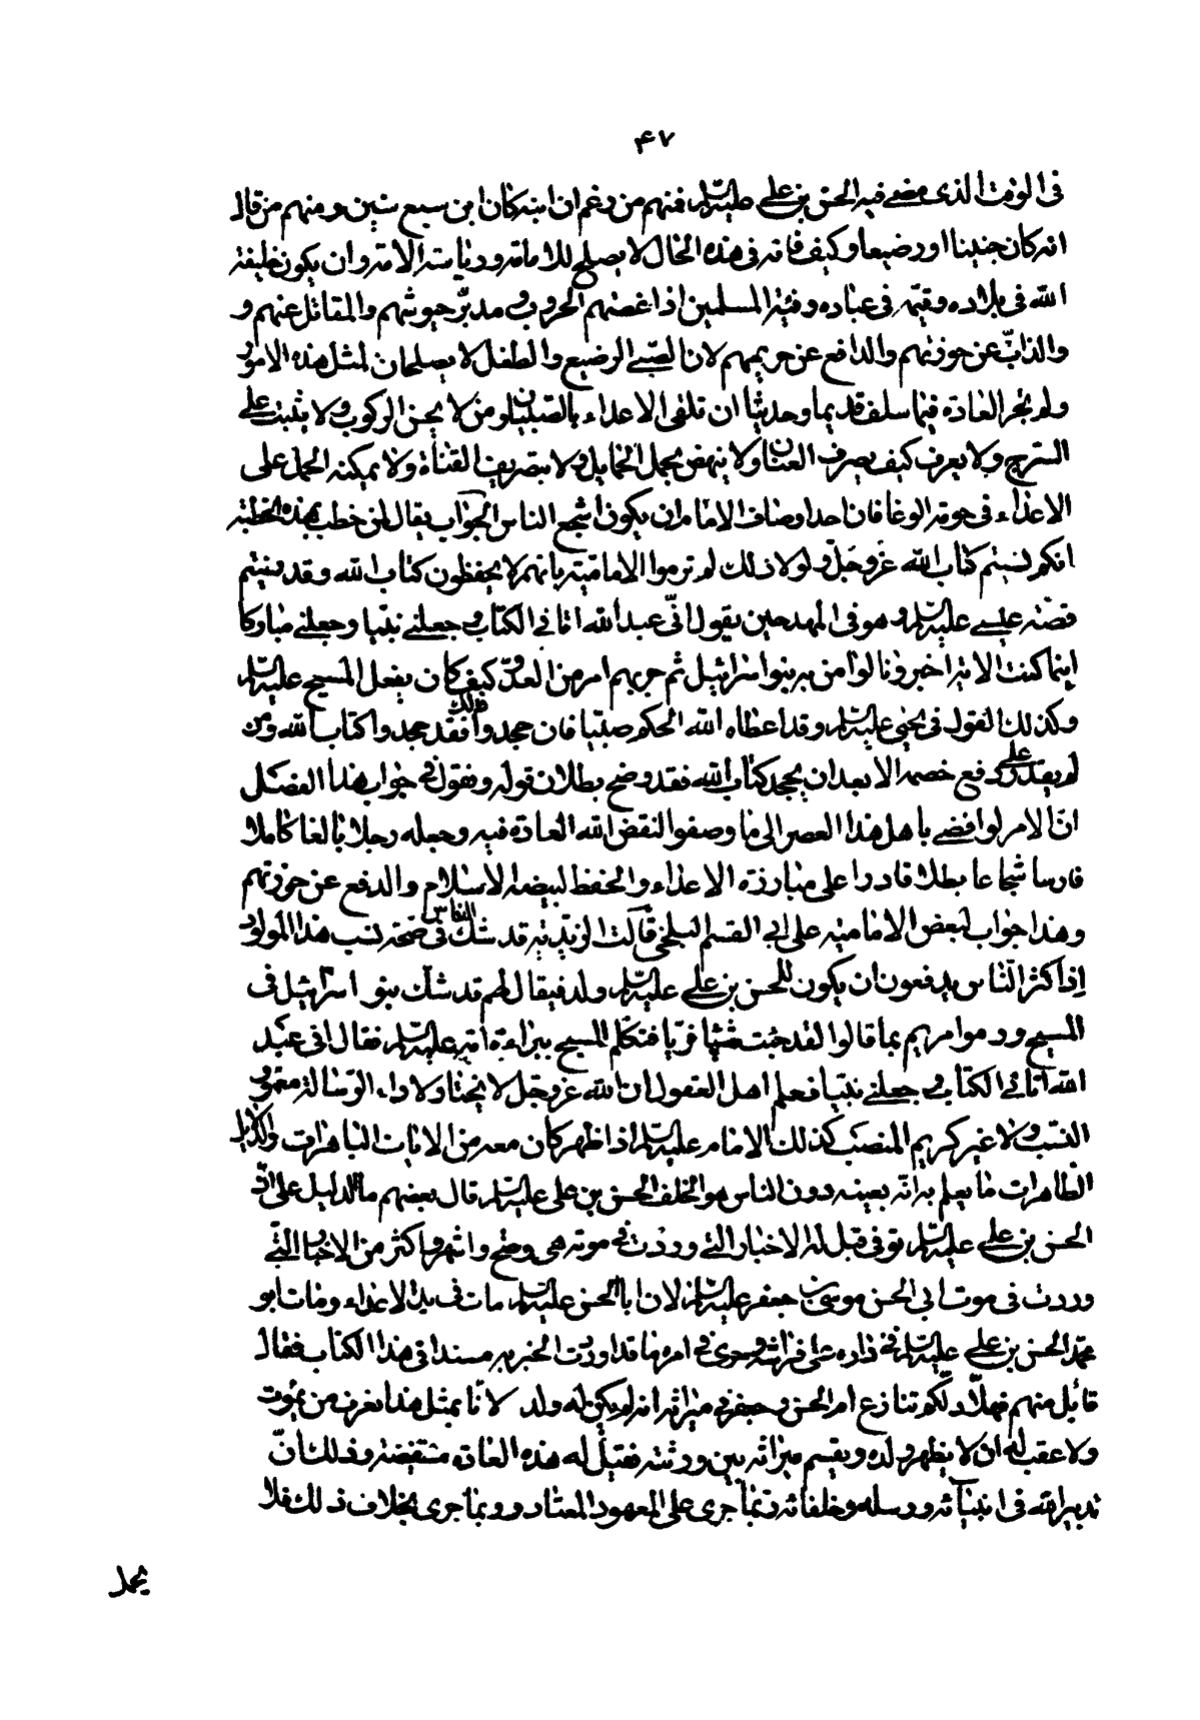 ۴۷
فی الوقت الذی مضی فیه الحسن بن علی علیه السلام فمنهم من زعم ان ابنه کان ابن سبع سنین و منهم من قال
انه کان جنینا او رضیعا و کیف فانه فی هذه الحال لا یصلح للامامة و ریاسة الامة و ان یکون خلیفة
الله فی بلاده و قیّمه فی عباده و فئة المسلمین اذا عضتهم الحروب و مدبّر جیوشهم والمقاتل عنهم و
والذابّ عن حوزتهم والدافع عن حریمهم لان الصبی الرضیع والطفل لا یصلحان لمثل هذه الامور
ولم تجر العادة فیما سلف قدیما وحدیثا ان تلقی الاعداء بالصبیان و من لا یحسن الرکوب و لا یثبت علی
السرج ولا یعرف کیف یصرف العنان ولا ینهض بحمل الحمایل و لا بتصریف القناة ولا یمکنه الحمل علی
الاعداء فی حومة الوغا فان احد اوصاف الامام ان یکون اشجع الناس الجواب یقال لمن خطب بهذه الخطبة
انکم نسیتم کتاب الله عزوجل ولولا ذلک لم ترموا الامامیة بانهم لا یحفظون کتاب الله وقد نسیتم
قصة عیسی علیه السلام و هو فی المهد حین یقول انّی عبد الله اتانی الکتاب و جعلنی نبیا وجعلنی مبارکا
اینما کنت الایة اخبرونا لو امن به بنو اسرائیل ثم حزبهم امر من العدوّ کیف کان یفعل المسیح علیه السلام
وکذلک القول فی یحیی علیه السلام وقد اعطاه الله الحکم صبیا فان جحدوا ذلک فقد جحدوا کتاب الله ومن
لم یقدر علی دفع خصمه الا بعد ان یجحد کتاب الله فقد وضح بطلان قوله ونقول فی جواب هذا الفصل
انّ الامر لو افضی باهل هذا العصر الی ما وصفوا لنقض الله العادة فیه وجعله رجلا بالغا کاملا
فارسا شجاعا بطلا قادرا علی مبارزة الاعداء والحفظ لبیضة الاسلام والدفع عن حوزتهم
وهذا جواب لبعض الامامیة علی ابی القسم البلخی قالت الزیدیة قد شک الناس فی صحة نسب هذا المولود
إذ اکثر الناس یدفعون ان یکون للحسن بن علی علیه السلام ولد فیقال لهم قد شک بنو اسرائیل فی
المسیح ورموا مریم بما قالوا لقد جئت شیئا فریا فتکلم المسیح ببراءة امه علیه السلام فقال انی عبد
الله اتانی الکتاب و جعلنی نبیا فعلم اهل العقول ان الله عزوجل لا یختار لاداء الرسالة مغمور
النسب ولا غیر کریم المنصب کذلک الامام علیه السلام اذا ظهر کان معه من الایات الباهرات والدلایل
الظاهرات ما یعلم به انّه بعینه دون الناس هو الخلف الحسن بن علی علیه السلام قال بعضهم ما الدلیل علی انّ
الحسن بن علی علیه السلام توفی قیل له الاخبار التی وردت فی موته هی اوضح و اشهر و اکثر من الاخبار التی
وردت فی موت ابی الحسن موسی بن جعفر علیه السلام لان ابا الحسن علیه السلام مات فی ید الاعداء ومات ابو
محمد الحسن بن علی علیه السلام فی داره علی فراشه وجری فی امره ما قد اوردت الخبر به مسندا فی هذا الکتاب فقال
قائل منهم فهلّا دلّکم تنازع ام الحسن و جعفر فی میراثه انه لم یکن له ولد لانّا بمثل هذا نعرف من یموت
ولا عقب له ان لا یظهر ولده ویقسم میراثه بین ورثته فقیل له هذه العادة مستفیضة وذلک انّ
تدبیر الله فی انبیائه ورسله وخلفائه ربّما جری علی المعهود المعتاد وربّما جری بخلاف ذلک فلا
یحمل